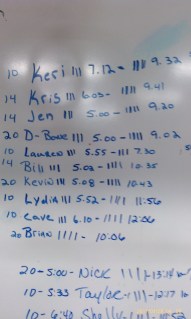 10 Keri III 7.12 - IIII 9.32
14 Kris III 6.03 - IIII 9.41
14 Jen III 5.00 - IIII 9.20
20 D-Bone III 5.00 - IIII 9.02
10 Lauren III 5.55 - III 7.30
14 Bill III 5.02 - IIII 10:35
20 Kevin III 5:08 - IIII 10:43
10 Lydia III 5:52 - IIII 11:56
10 Cave III 6.10 - IIII 12:06
20 Brian IIII - 10:06
20 - 5:00 - Nick
10 - 5:33 Taylor - IIII
10 - 6:40